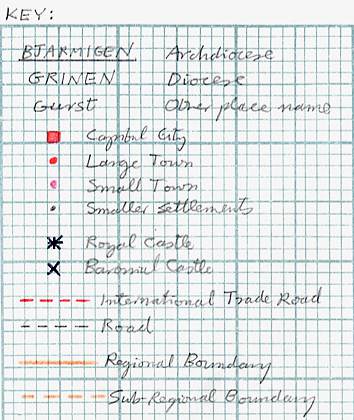 KEY:
BJARMIGEN Archdiocese
GRINEN Diocese
Gurst Other place name
Capital City
Large Town
Small Town
Smaller settlements
Royal Castle
Baronial Castle
International Trade Road
Road
Regional Boundary
Sub-Regional Boundary